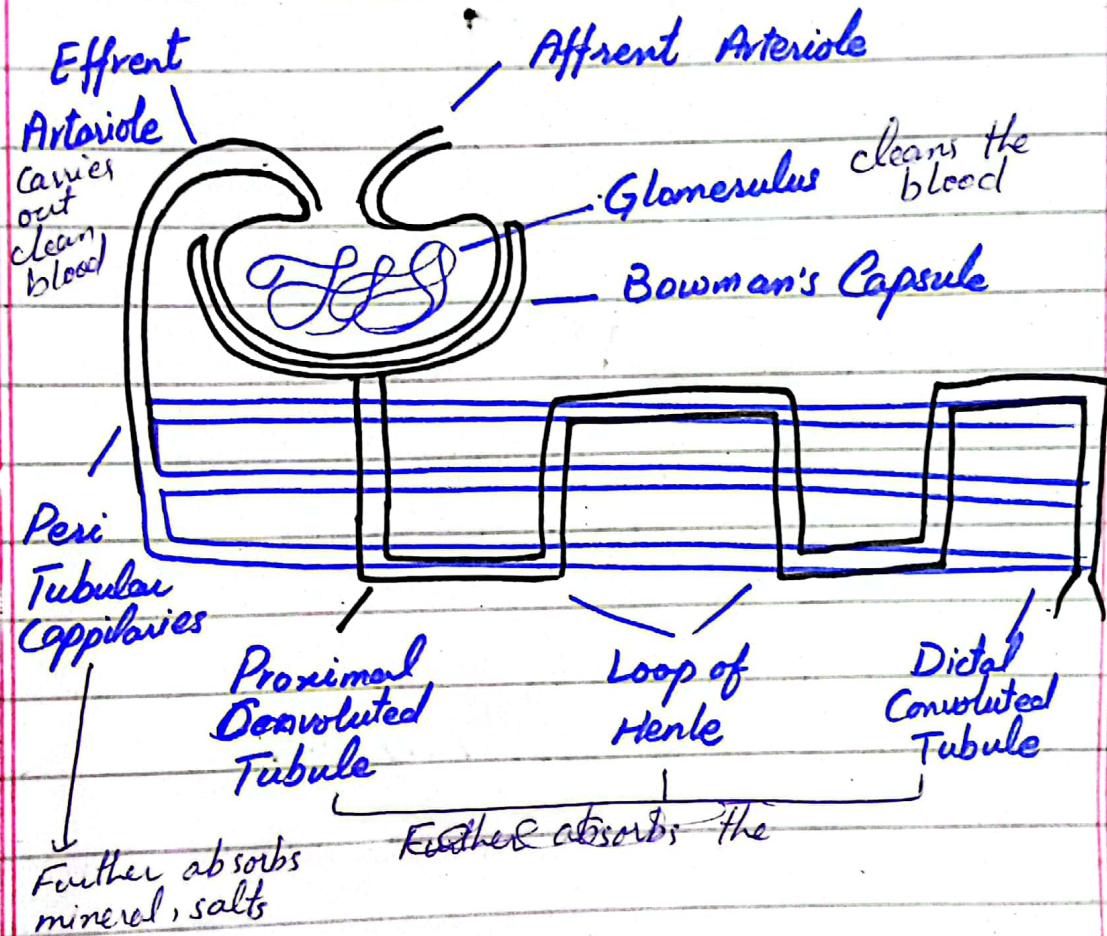 Effrent
Artariole
Carries
out
clean
blood
Affrent Arteriole
Glomerulus
cleans the
blood
Bowman's Capsule
Peri
Tubular
Cappilaries
Proximal
Convoluted
Tubule
Loop of
Henle
Dictal
Convoluted
Tubule
Further absorbs the
Further absorbs
mineral, salts